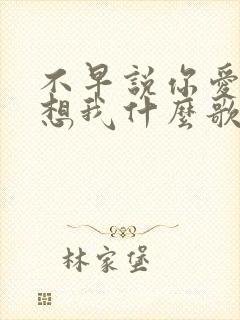 不早說你愛
想我什麼歌
林家堡